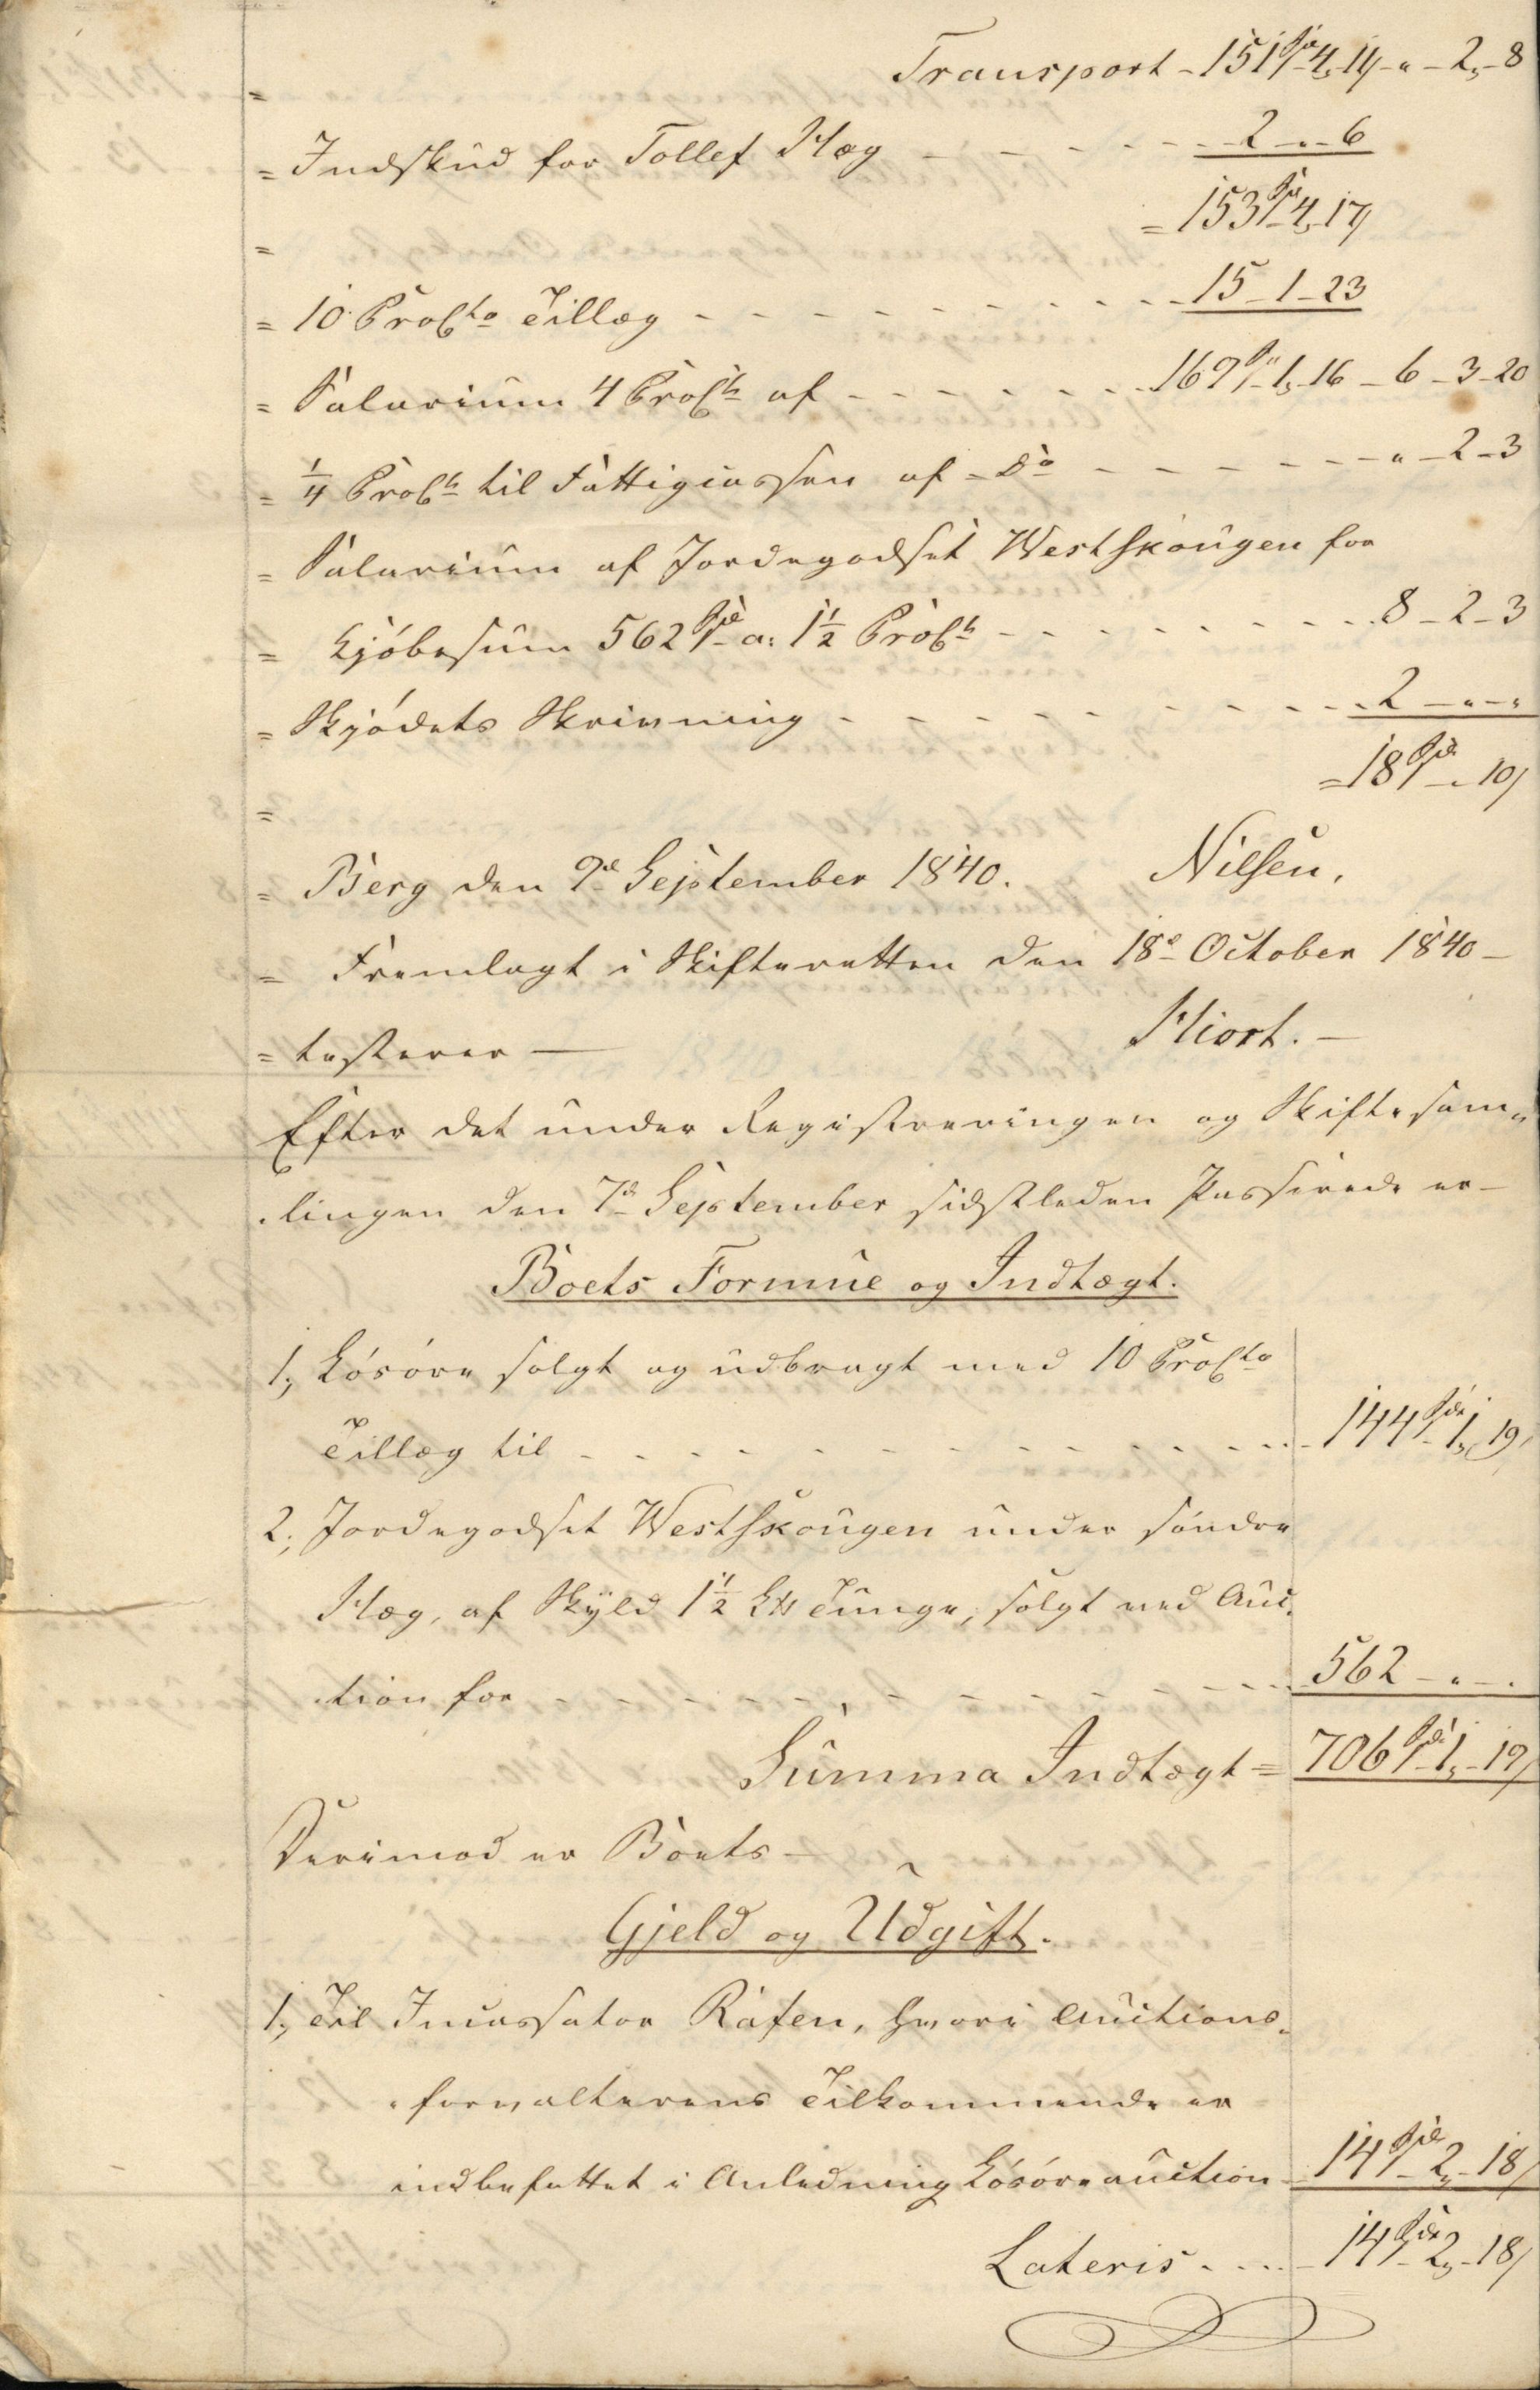 Transport - 151 Spd - 4, 14 - " - 2, - 8
= Indskud for Tollef Hæg - - - - - 2 - " - 6
= 153 Spd - 4, - 17
= 10 ProCto Tillæg - - - - - 15 - 1 - 23
= Salarium 4 ProCt af - - - - - 169 Spd - 1, - 16 - 6 - 3 - 20
= ¼ ProCt til Fattigcassen af - Do - - - - - " - 2 - 3
= Salarium af Jordegodset Westskougen for
= Kjøbesum 562 Spd a: 1½ ProCt - - - - - 8 - 2 - 3
= Skjødets Skrivning - - - - - 2 - " - "
= 18 Spd - " 10
= Berg den 9d September 1840. Nilsen.
= Fremlagt i Skifteretten den 18d October 1840 -
= testerer — Hiort. -
Efter det under Registreringen og Skiftesam-
lingen den 7d September sidstleden Passirede er -
Boets Formue og Indtægt.
1, Løsøre solgt og udbragt med 10 ProCto
Tillæg til - - - - - 144 Spd - 1, 19,
2, Jordegodset Westskougen under søndre
Hæg, af Skyld 1½ L℔ Tunge, solgt ved Auc-
tion for - - - - - 562 - " - "
Summa Indtægt = 706 Spd - 1, - 19
Derimod er Boets -
Gjeld og Udgift.
1, Til Incassator Rafen, hvori Auctions-
forvalterens Tilkommende er
indbefattet i Anledning Løsøreauction 14 Spd - 2, - 18
Lateris - - - - 14 Spd - 2, - 18